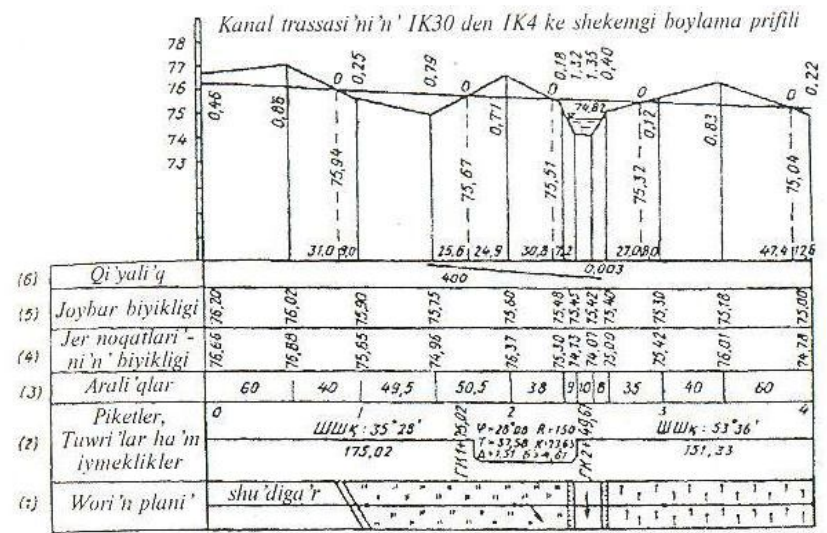 Kanal trassasi'ni'n' IK30 den IK4 ke shekemgi boylama prifili
78
77
76
75
74
73
0,46
0,86
0
0,25
0,79
0
0,71
0
0,18
1,32
1,35
0,40
0
0,12
0,83
0
0,22
74,82
75,94
75,67
75,51
75,32
75,04
31,0 9,0 25,6 24,9 30,8 7,2 27,0 8,0 47,4 12,6
(6) Qi'yali'q 400 0,003
(5) Joybar biyikligi 76,20 76,02 75,90 75,75 75,60 75,48 75,45 75,42 75,40 75,30 75,18 75,00
(4) Jer noqatlari'-
ni'n' biyikligi 76,66 76,88 75,65 74,96 76,37 75,30 74,13 74,07 75,09 75,42 76,01 74,78
(3) Arali'qlar 60 40 49,5 50,5 38 9 10 8 35 40 60
(2) Piketler,
Tuwri'lar ha'm
iymeklikler
0 1 2 3 4
ШШҚ: 35°28' 175,02
ПК1+75,02
φ=28°08 R=150
ПК2+49,67
ШШҚ: 53°36' 151,33
(1) Wori'n plani' shu'diga'r